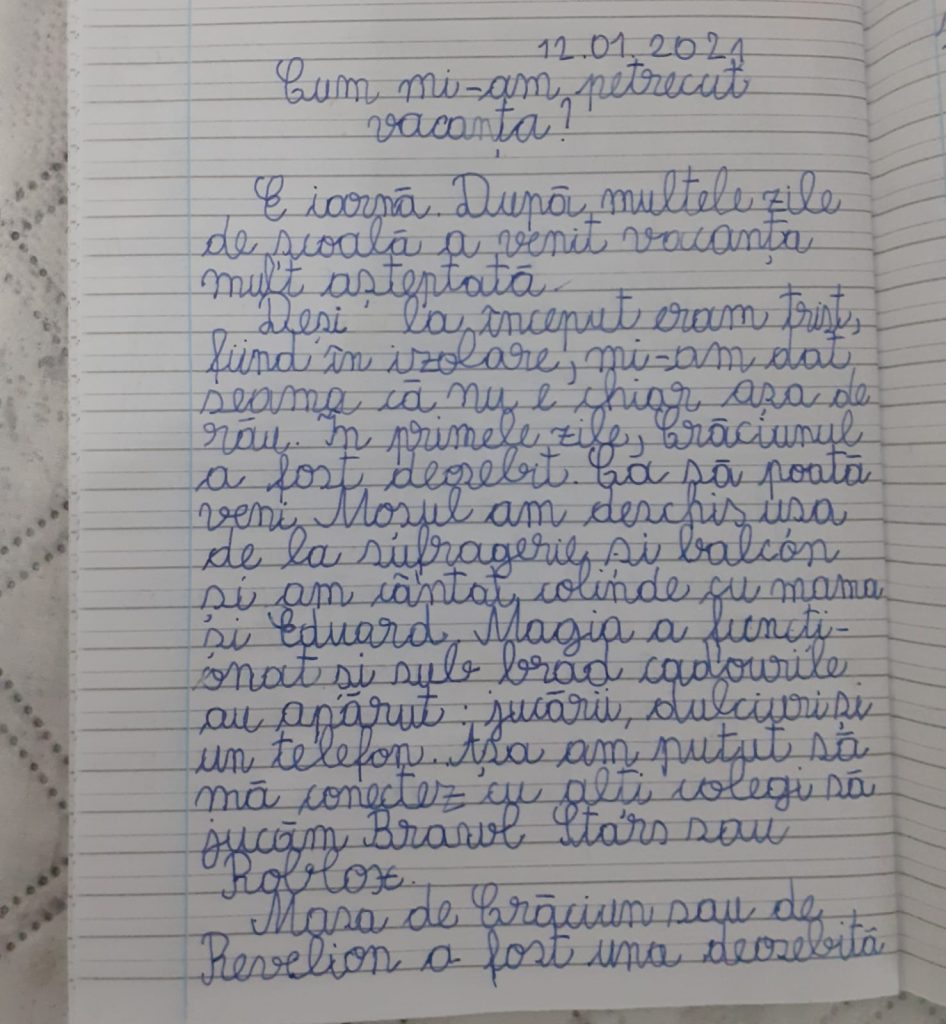 12.01.2021
Cum mi-am petrecut
vacanța?
E iarnă. După multele zile
de școală a venit vacanța
mult așteptată.
Deși la început eram trist,
fiind în izolare, mi-am dat
seama că nu e chiar așa de
rău. În primele zile, Crăciunul
a fost deosebit. Ca să poată
veni Moșul am deschis ușa
de la sufragerie și balcon
și am cântat colinde cu mama
și Eduard. Magia a functi-
onat și sub brad cadourile
au apărut: jucării, dulciuri și
un telefon. Așa am putut să
mă conectez cu alți colegi să
jucăm Brawl Stars sau
Roblox.
Masa de Crăciun sau de
Revelion a fost una deosebită